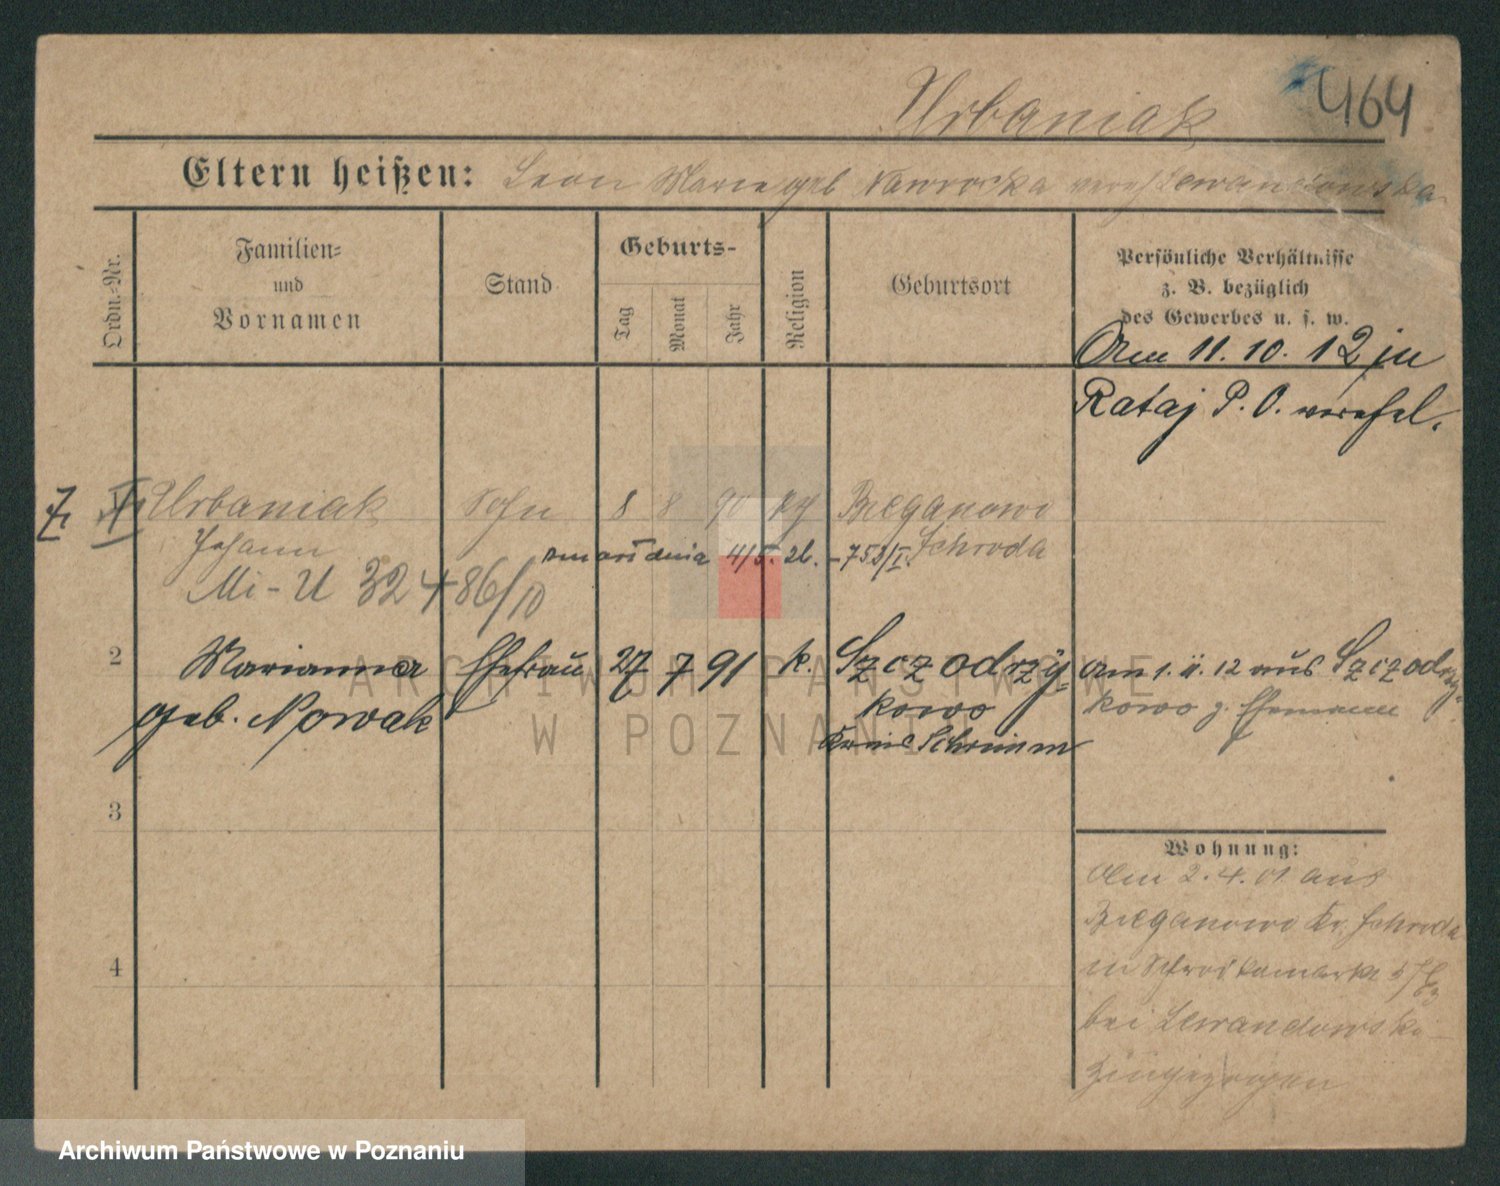 Urbaniak 464
Eltern heißen: Leon Marie geb Nawrocka Lewandowska
Ordn.-Nr.
Familien- und Vornamen
Stand
Geburts-
Tag
Monat
Jahr
Religion
Geburtsort
Persönliche Verhältnisse
z. B. bezüglich
des Gewerbes u. s. w.
Am 11. 10. 12 in
Rataj P. O. verehel.
Urbaniak Sohn 8 8 90 Bieganowo
Johann Schroda
zmarł dnia 4/5. 26. - 753/I.
Mi-U 32486/10
2 Marianna Ehefrau 27 7 91 k. Szczodrzy-
geb. Nowak kowo
Kreis Schrimm
Am 1. 11. 12 aus Szczodrzy-
kowo z. Ehemann
3
4
Wohnung:
Am 2. 4. 01 aus
Bieganowo Kr. Schroda
in
bei Lewandowska
zugezogen
ARCHIWUM PAŃSTWOWE
W POZNANIU
Archiwum Państwowe w Poznaniu